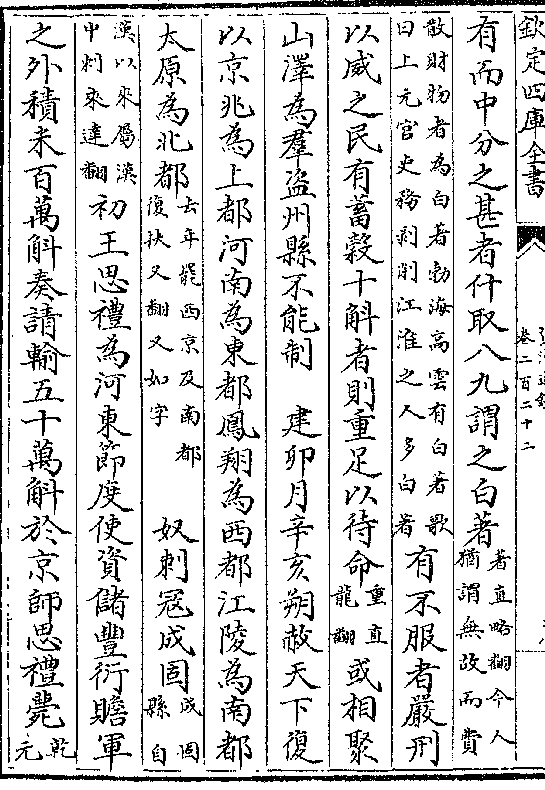 欽定四庫全書 資治通鑑 卷二百二十二
有而中分之甚者什取八九謂之白著著直略翻今人猶謂無故而費
散財物者為白著勃海高雲有白著歌曰上元官吏務剥削江淮之人多白著有不服者嚴刑
以威之民有蓄穀十斛者則重足以待命重直龍翻或相聚
山澤為羣盗州縣不能制 建卯月辛亥朔赦天下復
以京兆為上都河南為東都鳳翔為西都江陵為南都
太原為北都去年罷西京及南都復扶又翻又如字 奴剌寇成固成固縣自
漢以來屬漢中剌來達翻 初王思禮為河東節度使資儲豐衍贍軍
之外積米百萬斛奏請輸五十萬斛於京師思禮薨乾元